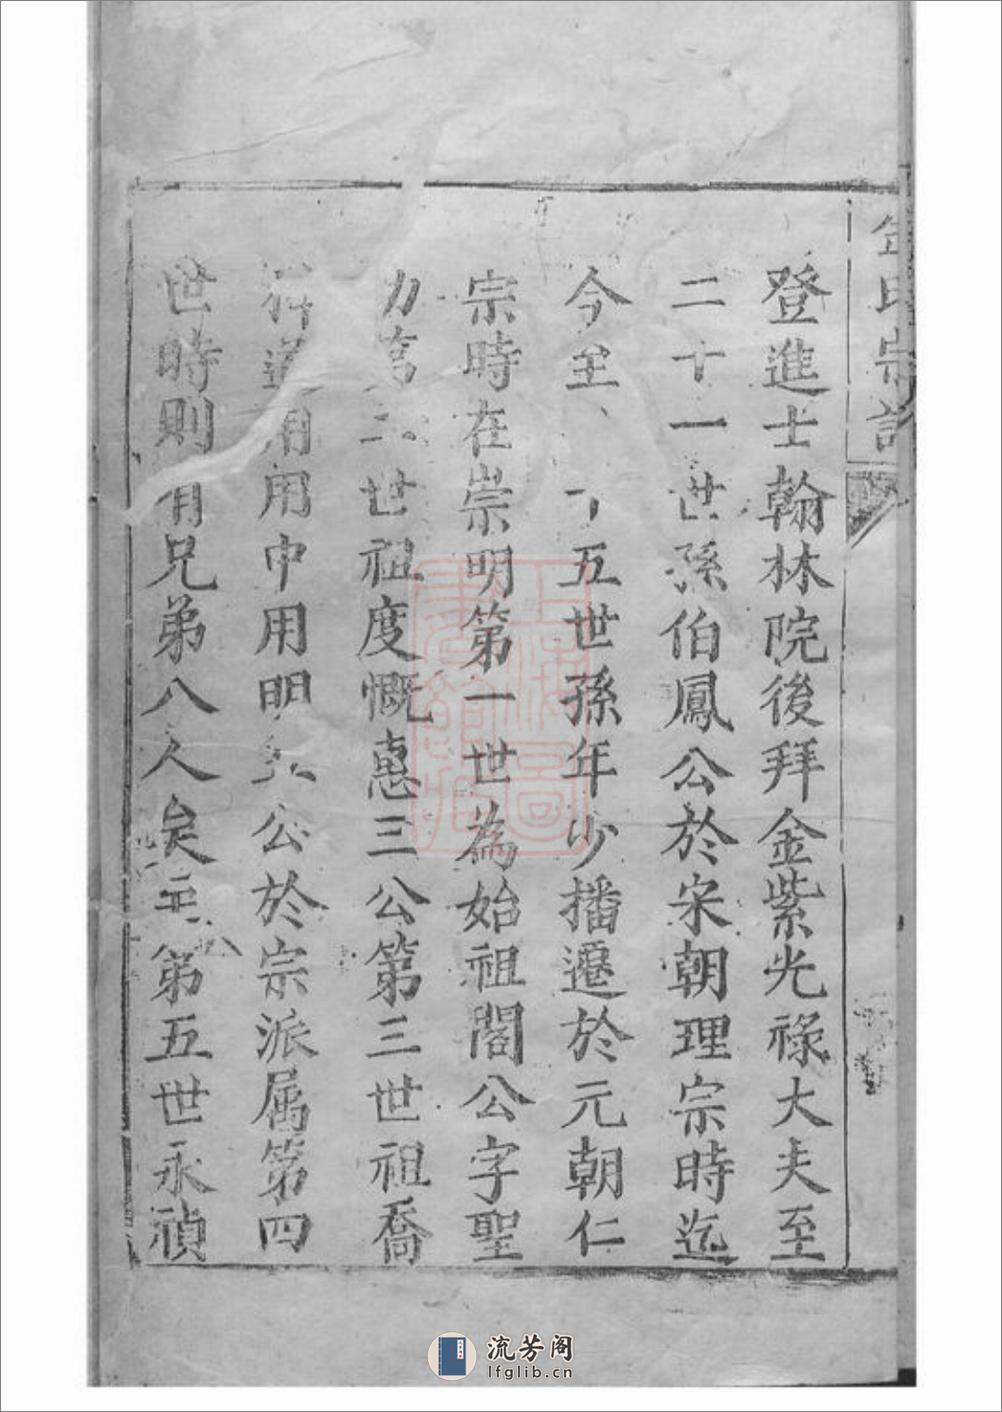 氏宗譜
登進士翰林院後拜金紫光祿大夫至
二十一世孫伯鳳公於宋朝理宗時迄
今至五世孫年少播遷於元朝仁
宗時在崇明第一世為始祖閣公字聖
世祖度慨惠三公第三世祖喬
用用中用明公於宗派属第四
世時則有兄弟八人矣第五世永禎
上海圖書館藏
流芳阁
lfglib.cn